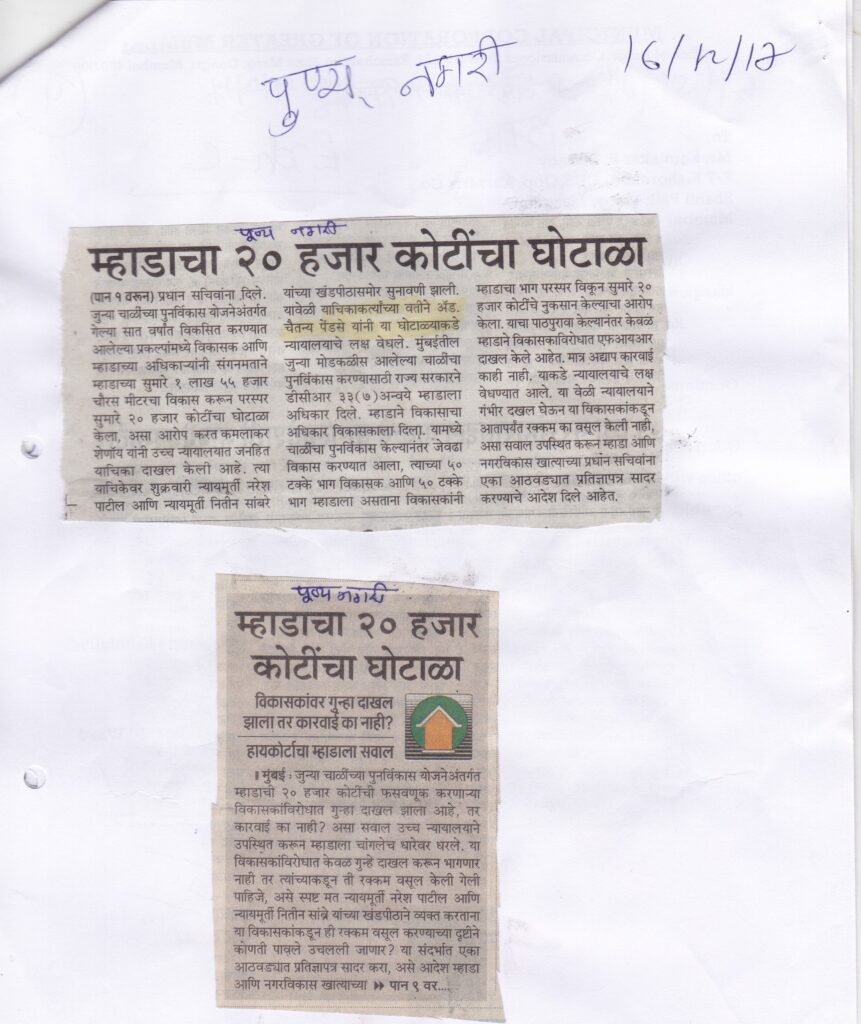 पुण्य नगरी 16/12/17
पुण्य नगरी
म्हाडाचा २० हजार कोटींचा घोटाळा
(पान १ वरून) प्रधान सचिवांना दिले.
जुन्या चाळींच्या पुनर्विकास योजनेअंतर्गत
गेल्या सात वर्षांत विकसित करण्यात
आलेल्या प्रकल्पांमध्ये विकासक आणि
म्हाडाच्या अधिकाऱ्यांनी संगनमताने
म्हाडाच्या सुमारे १ लाख ५५ हजार
चौरस मीटरचा विकास करून परस्पर
सुमारे २० हजार कोटींचा घोटाळा
केला, असा आरोप करत कमलाकर
शेणॉय यांनी उच्च न्यायालयात जनहित
याचिका दाखल केली आहे. त्या
याचिकेवर शुक्रवारी न्यायमूर्ती नरेश
पाटील आणि न्यायमूर्ती नितीन सांबरे
यांच्या खंडपीठासमोर सुनावणी झाली.
यावेळी याचिकाकर्त्यांच्या वतीने अ‍ॅड.
चैतन्य पेंडसे यांनी या घोटाळ्याकडे
न्यायालयाचे लक्ष वेधले. मुंबईतील
जुन्या मोडकळीस आलेल्या चाळींचा
पुनर्विकास करण्यासाठी राज्य सरकारने
डीसीआर ३३(७)अन्वये म्हाडाला
अधिकार दिले. म्हाडाने विकासाचा
अधिकार विकासकाला दिला. यामध्ये
चाळींचा पुनर्विकास केल्यानंतर जेवढा
विकास करण्यात आला, त्याच्या ५०
टक्के भाग विकासक आणि ५० टक्के
भाग म्हाडाला असताना विकासकांनी
म्हाडाचा भाग परस्पर विकून सुमारे २०
हजार कोटींचे नुकसान केल्याचा आरोप
केला. याचा पाठपुरावा केल्यानंतर केवळ
म्हाडाने विकासकाविरोधात एफआयआर
दाखल केले आहेत. मात्र अद्याप कारवाई
काही नाही. याकडे न्यायालयाचे लक्ष
वेधण्यात आले. या वेळी न्यायालयाने
गंभीर दखल घेऊन या विकासकांकडून
आतापर्यंत रक्कम का वसूल केली नाही,
असा सवाल उपस्थित करून म्हाडा आणि
नगरविकास खात्याच्या प्रधान सचिवांना
एका आठवड्यात प्रतिज्ञापत्र सादर
करण्याचे आदेश दिले आहेत.
पुण्य नगरी
म्हाडाचा २० हजार
कोटींचा घोटाळा
विकासकांवर गुन्हा दाखल
झाला तर कारवाई का नाही?
हायकोर्टाचा म्हाडाला सवाल
। मुंबई : जुन्या चाळींच्या पुनर्विकास योजनेअंतर्गत
म्हाडाची २० हजार कोटींची फसवणूक करणाऱ्या
विकासकांविरोधात गुन्हा दाखल झाला आहे, तर
कारवाई का नाही? असा सवाल उच्च न्यायालयाने
उपस्थित करून म्हाडाला चांगलेच धारेवर धरले. या
विकासकांविरोधात केवळ गुन्हे दाखल करून भागणार
नाही तर त्यांच्याकडून ती रक्कम वसूल केली गेली
पाहिजे, असे स्पष्ट मत न्यायमूर्ती नरेश पाटील आणि
न्यायमूर्ती नितीन सांब्रे यांच्या खंडपीठाने व्यक्त करताना
या विकासकांकडून ही रक्कम वसूल करण्याच्या दृष्टीने
कोणती पावले उचलली जाणार? या संदर्भात एका
आठवड्यात प्रतिज्ञापत्र सादर करा, असे आदेश म्हाडा
आणि नगरविकास खात्याच्या ▸▸ पान ९ वर....